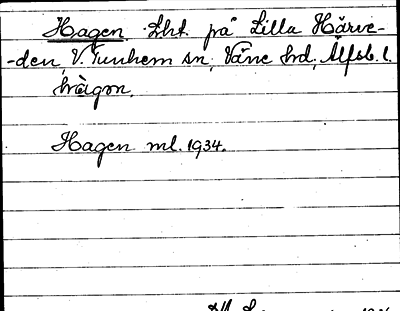 Hagen. Lht. på Lilla Härve-
-den, V. Tunhem sn, Väne hd, Älfsb. l.
hagən.
Hagen ml. 1934.